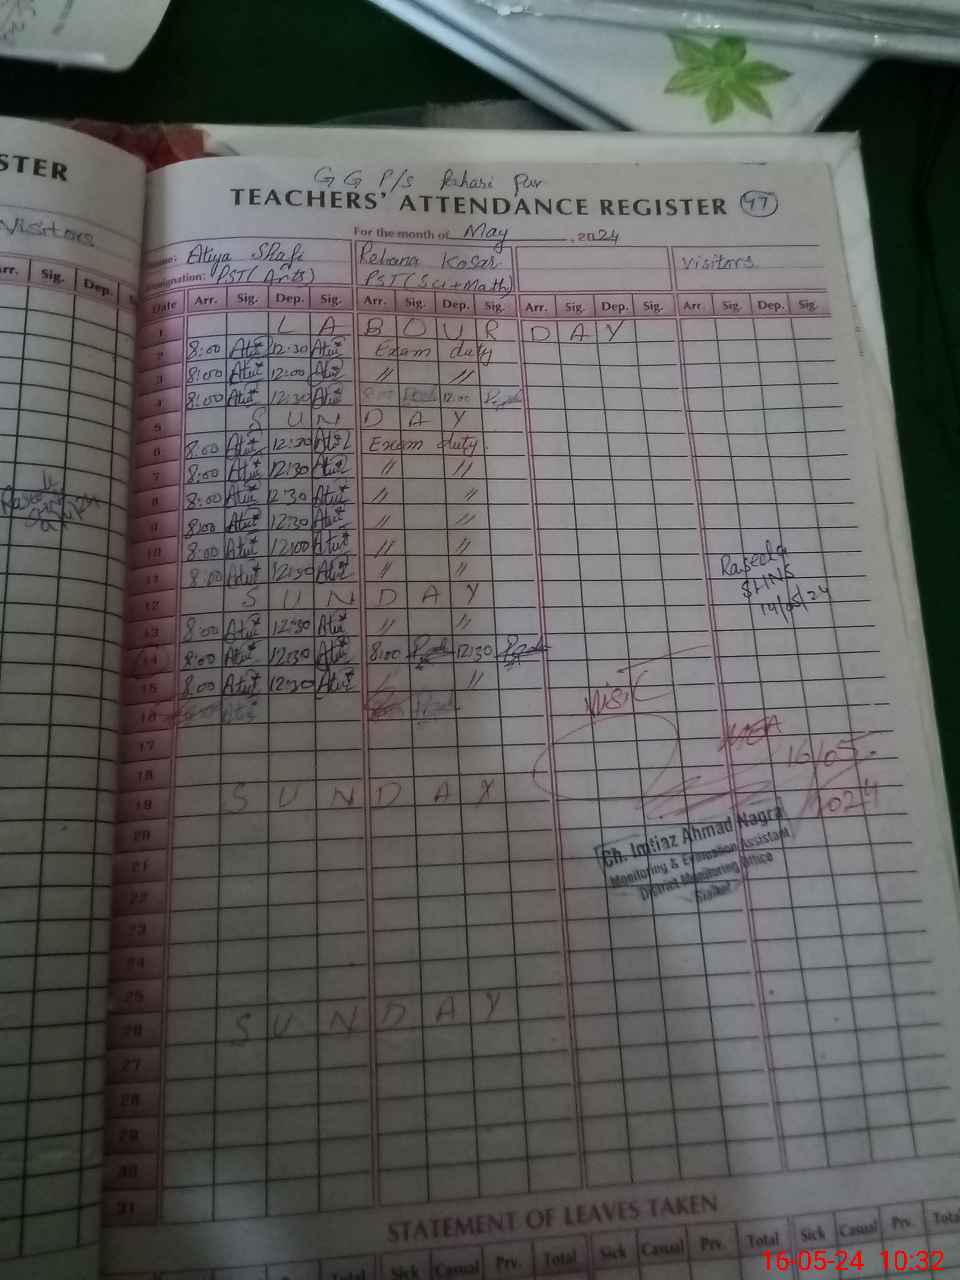 STER
Visitors
Arr. Sig. Dep.
G G P/S Pahari Pur
TEACHERS' ATTENDANCE REGISTER 47
For the month of May, 2024
Name: Atiya Shafi Rehana Kosar Visitors
Designation: PST(Arts) PST(Sci+Math)
Date Arr. Sig. Dep. Sig. Arr. Sig. Dep. Sig. Arr. Sig. Dep. Sig. Arr. Sig. Dep. Sig.
1 L A B O U R D A Y
2 8:00 12:30 Exam duty
3 8:00 12:00 // //
4 8:00 12:30 8:00 12:00
5 S U N D A Y
6 8:00 12:30 Exam duty
7 8:00 12:30 // //
8 8:00 12:30 // //
9 8:00 12:30 // //
10 8:00 12:00 // //
11 8:00 12:30 // //
12 S U N D A Y
13 8:00 12:30 // //
14 8:00 12:30 8:00 12:30
15 8:00 12:30 // //
16
17
18
19 S U N D A Y
20
21
22
23
24
25
26 S U N D A Y
27
28
29
30
31
14/05/24
Visit
MEA
16/05-
2024
Ch. Imtiaz Ahmad Nagra
Monitoring & Evaluation Assistant
District Monitoring Office
Sialkot
STATEMENT OF LEAVES TAKEN
Sick Casual Prv. Total Sick Casual Prv. Total Sick Casual Prv. Total
16-05-24 10:32